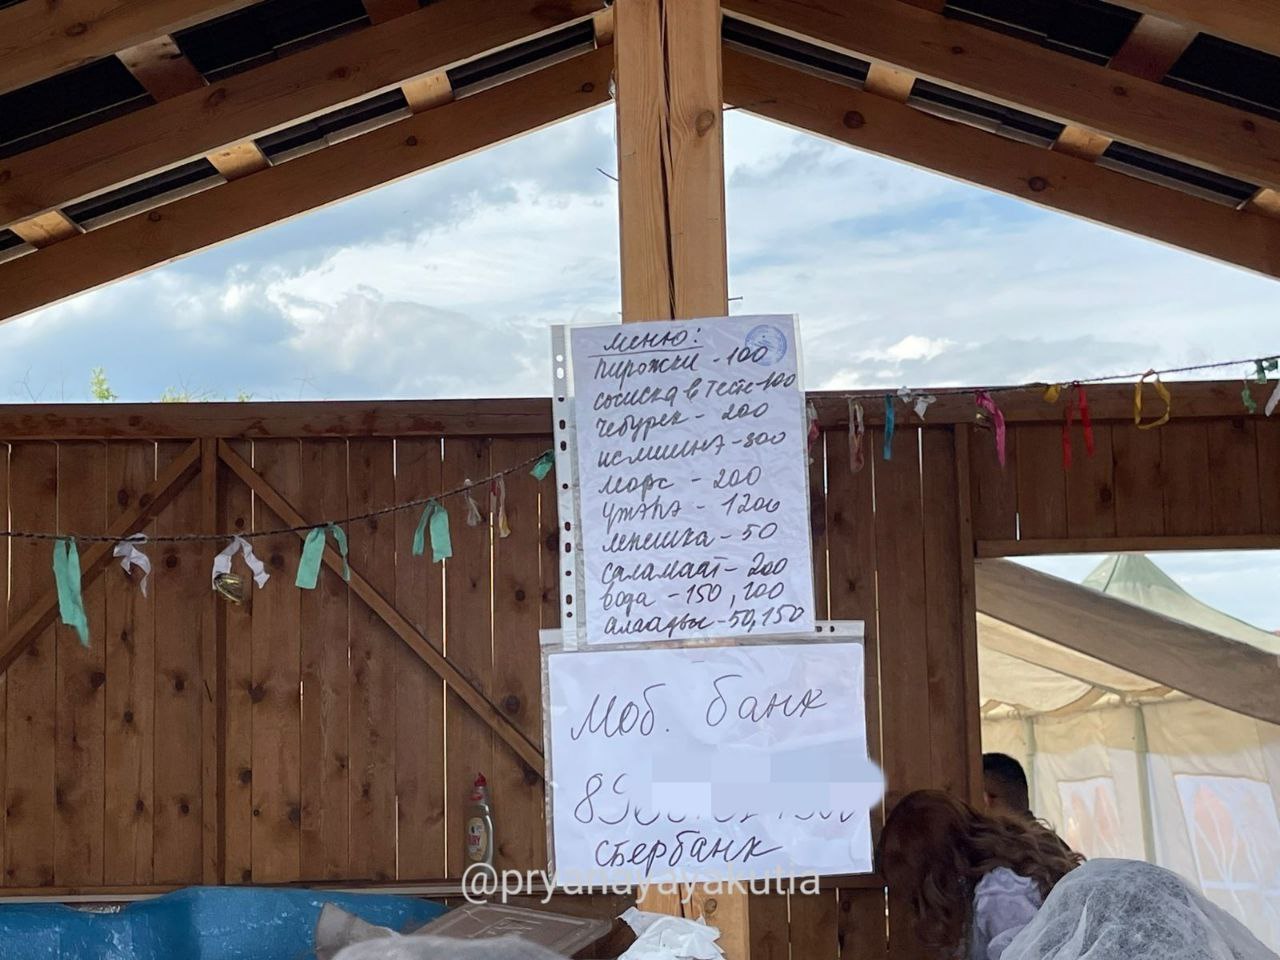 Меню:
пирожки - 100
сосиска в тесте-100
чебурек - 200
исмиинэ - 300
морс - 200
үтэһэ - 1200
лепешка - 50
саламаат - 200
вода - 150, 100
алаадьы - 50, 150
Моб. банк
89
сбербанк
@pryanayayakutia